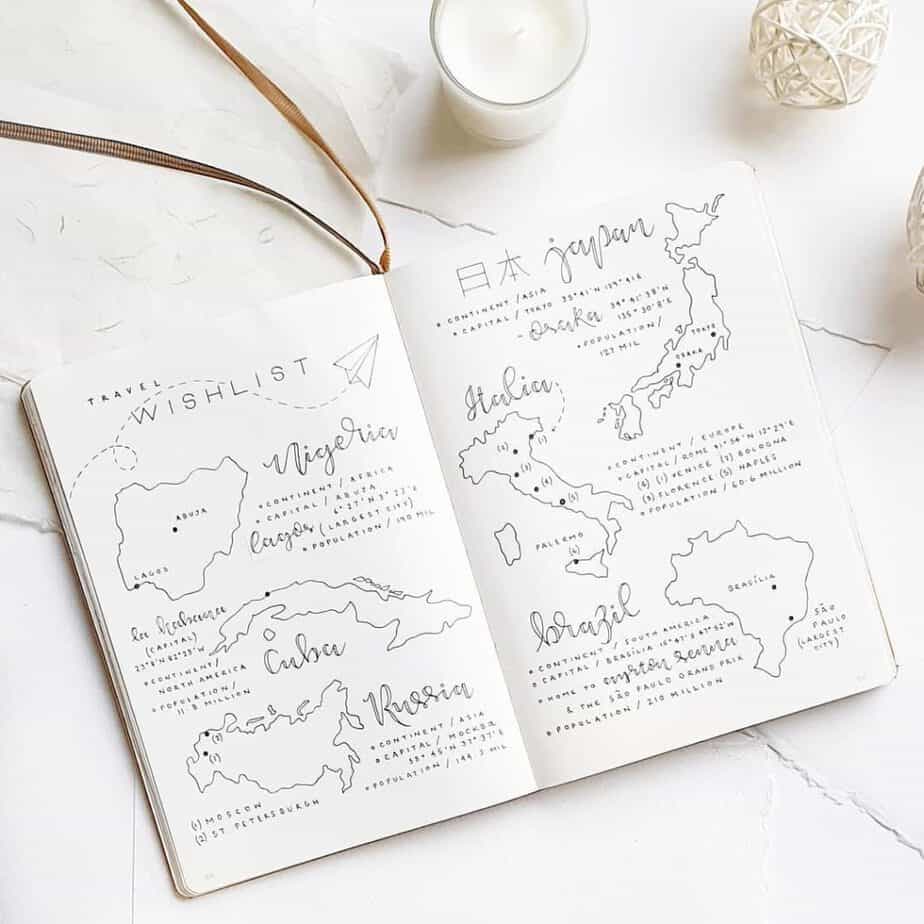 TRAVEL
WISHLIST
Nigeria
CONTINENT / AFRICA
CAPITAL / ABUJA
6°27'N 3°23'E
lagos (LARGEST CITY)
POPULATION / 190 MIL
ABUJA
LAGOS
la habana
(CAPITAL)
23°8'N 82°23'W
CONTINENT /
NORTH AMERICA
POPULATION /
11.8 MILLION
Cuba
Russia
CONTINENT / ASIA
CAPITAL / MOCKOW
55°45'N 37°37'E
POPULATION / 144.3 MIL
(2)
(1)
(1) MOSCOW
(2) ST PETERSBURGH
日本 japan
CONTINENT / ASIA
CAPITAL / TOKYO 35°41'N 139°41'E
- osaka 34°41'38"N
135°30'8"E
POPULATION /
127 MIL
TOKYO
OSAKA
Italia
CONTINENT / EUROPE
CAPITAL / ROME 41°54'N 12°29'E
VENICE BOLOGNA
FLORENCE (5) NAPLES
POPULATION / 60.6 MILLION
PALERMO
brazil
CONTINENT / SOUTH AMERICA
CAPITAL / BRASÍLIA 15°47'S 47°52'W
HOME TO ayrton senna
& THE SÃO PAULO GRAND PRIX
POPULATION / 210 MILLION
BRASÍLIA
SÃO
PAULO
(LARGEST
CITY)